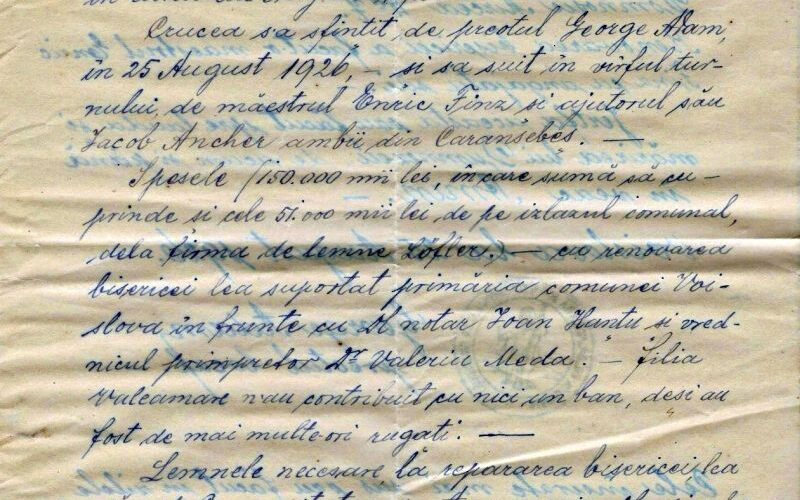 Crucea s'a sfințit, de preotul George Adam,
în 25 August 1926, – si sa suit în vîrful tur-
nului, de măestrul Enric Finz si ajutorul său
Jacob Ancher ambii din Caransebeș. —
Spesele (150.000 mii lei, în care sumă să cu-
prinde si cele 51.000 mii lei, de pe izlazul comunal,
dela firma de lemne Löfler.) – cu renovarea
bisericei lea suportat primăria comunei Voi-
slova în frunte cu Dl notar Ioan Hantu si vred-
nicul primpretor Dr Valeriu Meda. – Filia
Valeamare n-au contribuit cu nici un ban, desi au
fost de mai multe-ori rugati. —
Lemnele necesare la repararea bisericei lea